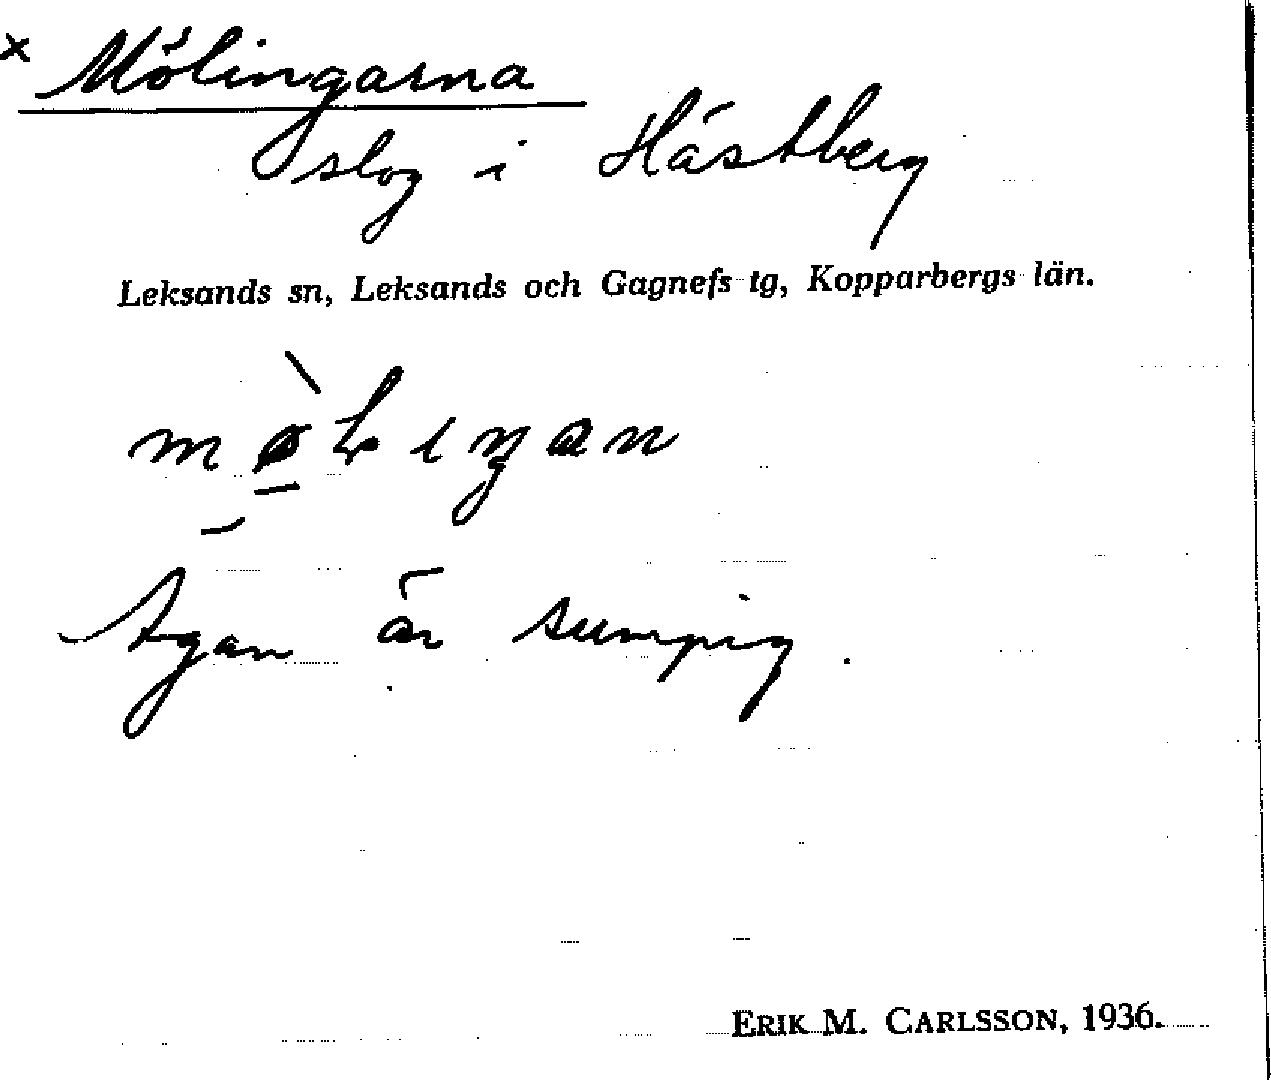 x Mölingarna
slog i Hästberg
Leksands sn, Leksands och Gagnefs tg, Kopparbergs län.
Ägan är sumpig.
ERIK M. CARLSSON, 1936.